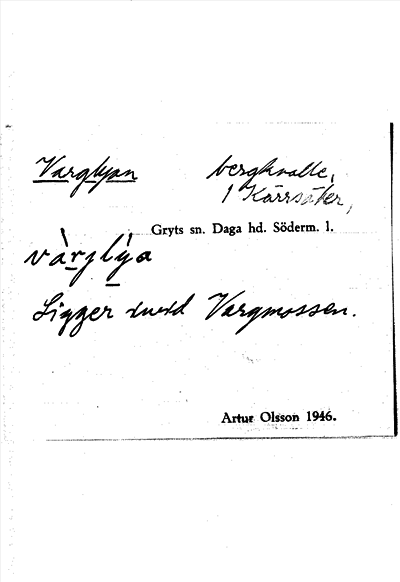 Varglyan bergknalle,
1 Kärrsäter,
Gryts sn. Daga hd. Söderm. l.
và̀rjly̌a
Ligger invid Vargmossen.
Artur Olsson 1946.